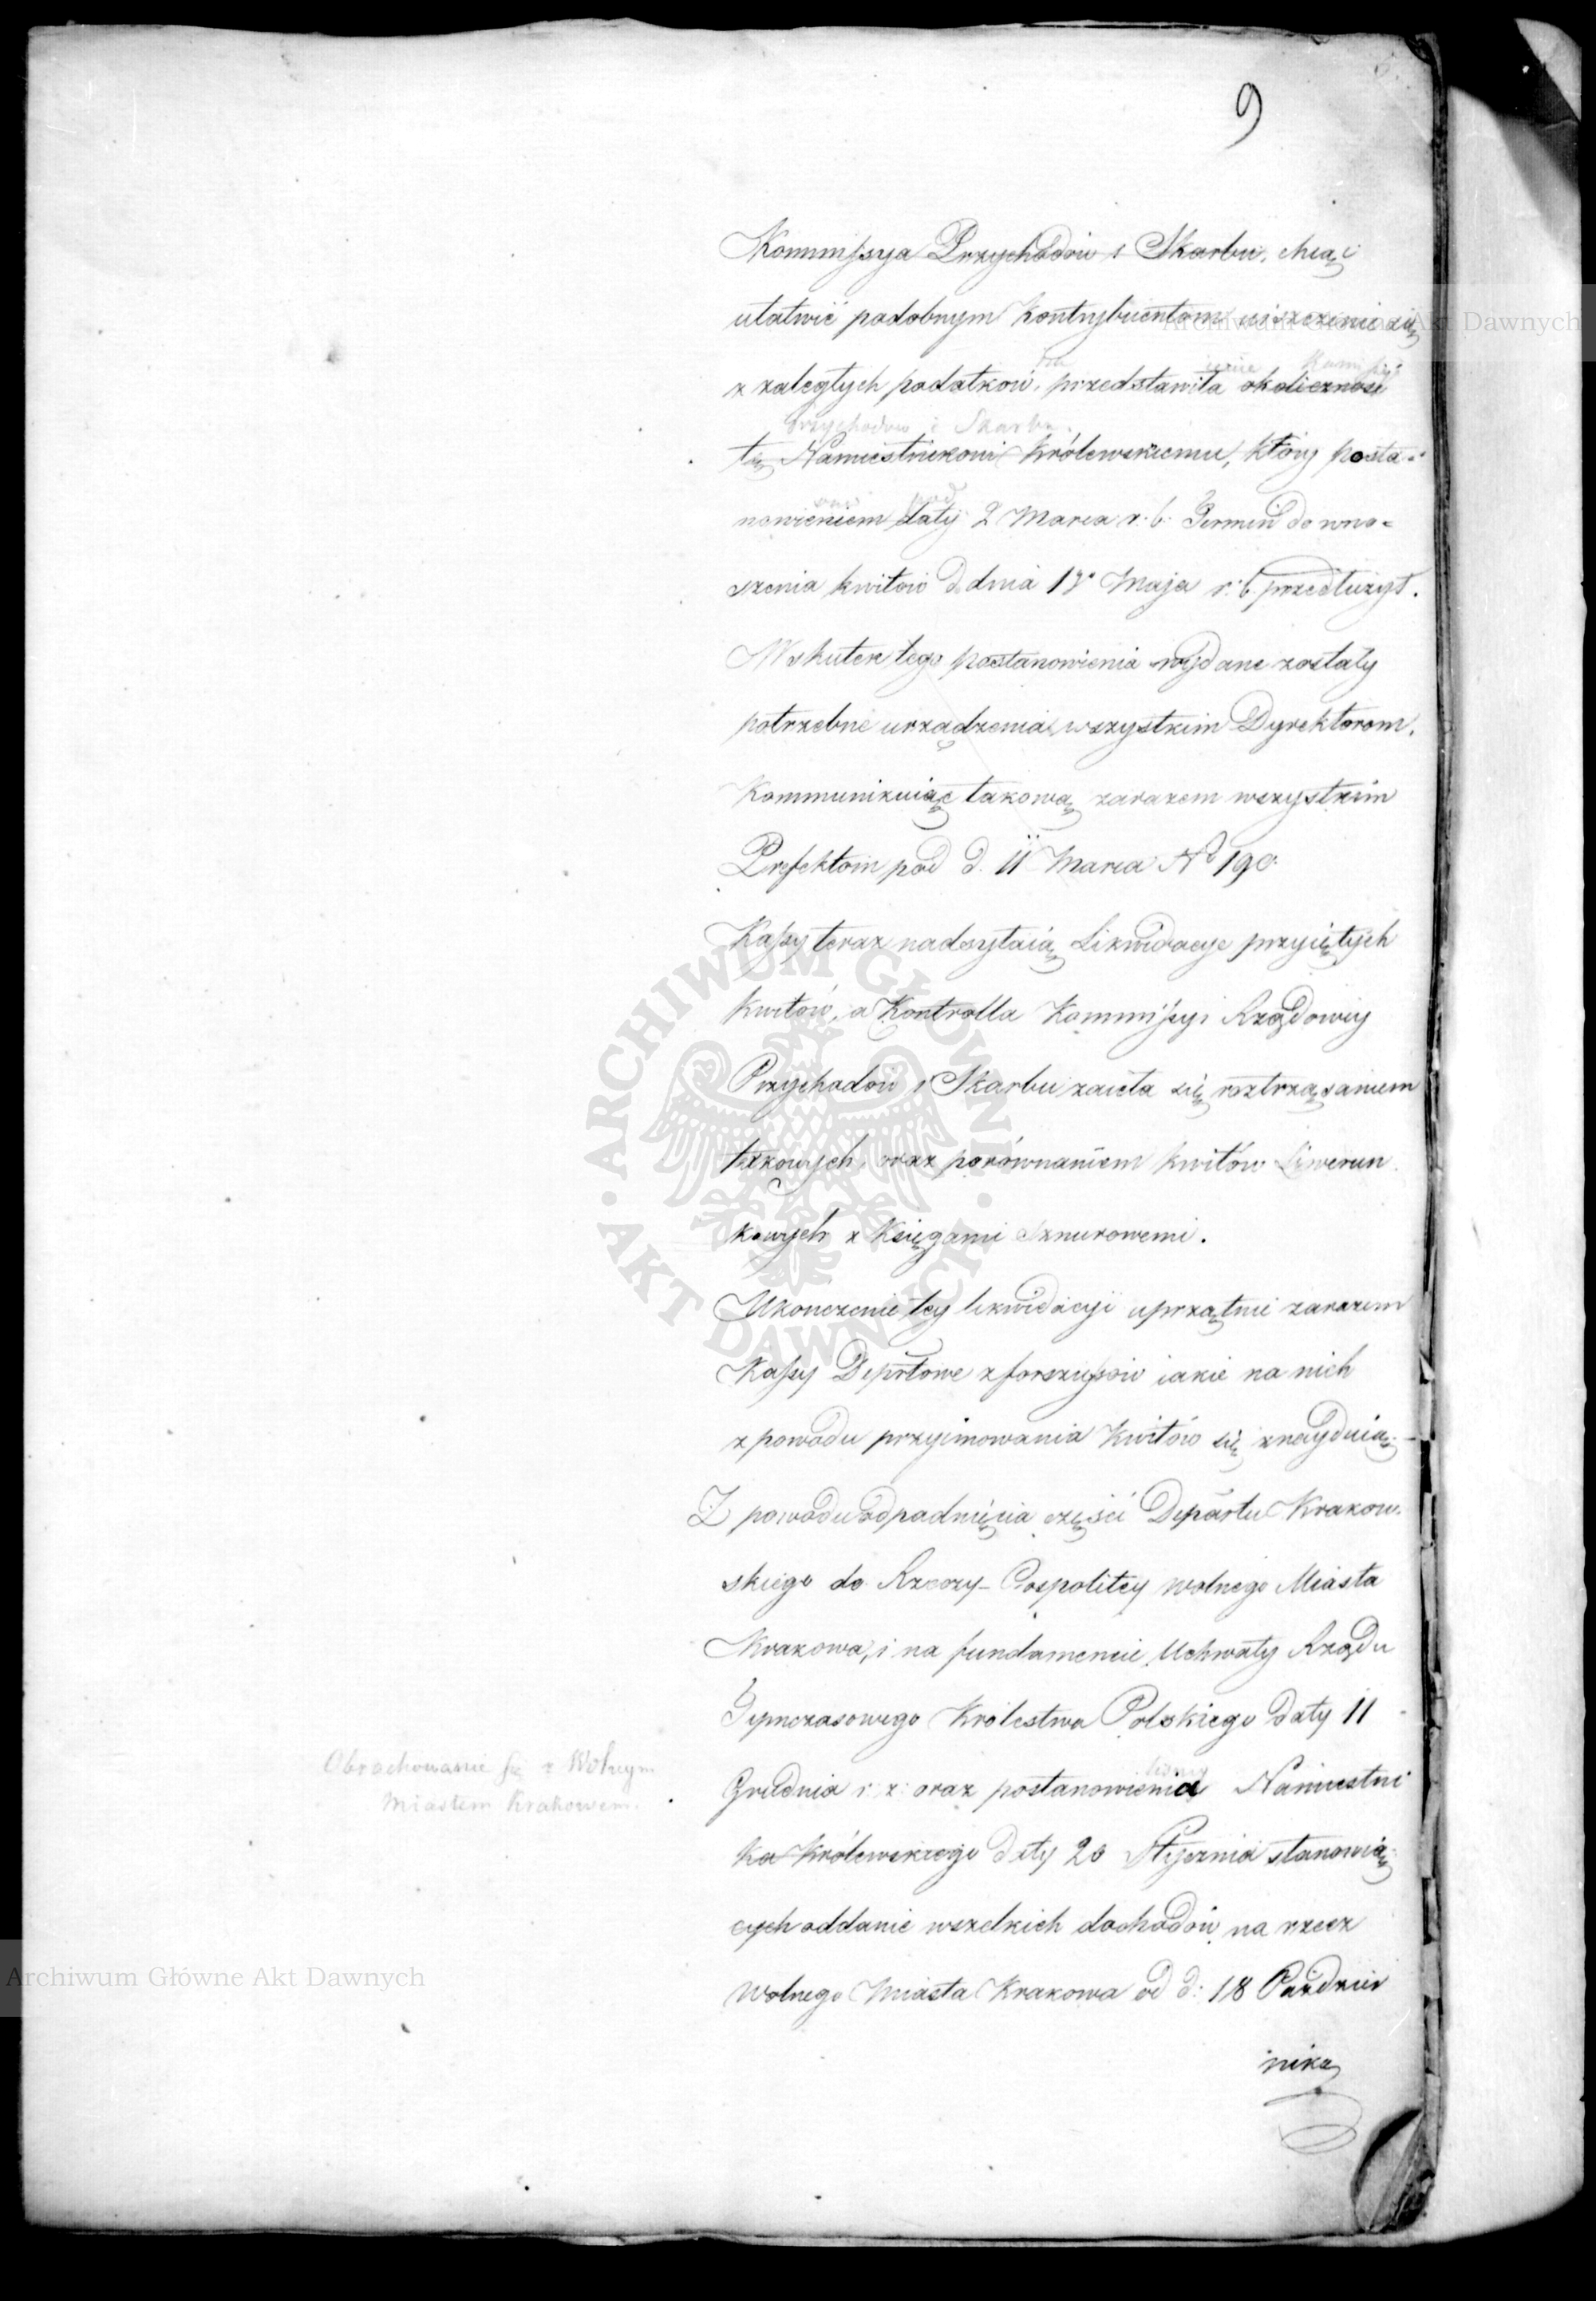 9
Kommissya Przychodów i Skarbu, chcąc
ułatwić podobnym kontrybuentom uiszczenie się
z zaległych podatków, przedstawiła okoliczność
Przychodów i Skarbu.
tę Namiestnikowi Królewskiemu, który posta=
pod
nowieniem daty 2 Marca r. b. Termin do wno=
szenia kwitów do dnia 1go Maja r. b. przedłużył.
W skutek tego postanowienia wydane zostały
potrzebne urządzenia wszystkim Dyrektorom,
Kommunikuiąc takową zarazem wszystkim
Prefektom pod d. 11 Marca No 190.
Kassy teraz nadsyłaią Likwidacye przyiętych
kwitów, a Kontrolla Kommissyi Rządowey
Przychodów i Skarbu zaięta się roztrząsaniem
takowych, oraz porównaniem kwitów Liwerun
kowych z Księgami Sznurowemi.
Ukończenie tey likwidacyi uprzątnie zarazem
Kassy Deprtowe z forszussów iakie na nich
z powodu przyimowania Kwitów się znayduią.
Z powodu odpadnięcia części Departu Krakow-
skiego do Rzeczy-Pospolitey wolnego Miasta
Krakowa, i na fundamencie Uchwały Rządu
Tymczasowego Królestwa Polskiego daty 11
Obrachowanie się z Wolnym
Miastem Krakowem.
Grudnia r. z. oraz postanowienia Namiestni
ka Królewskiego daty 20 Stycznia stanowią-
cych oddanie wszelkich dochodów na rzecz
Wolnego Miasta Krakowa od d. 18 Paździer
nika
Archiwum Główne Akt Dawnych
Archiwum Główne Akt Dawnych
ARCHIWUM GŁÓWNE · AKT DAWNYCH ·